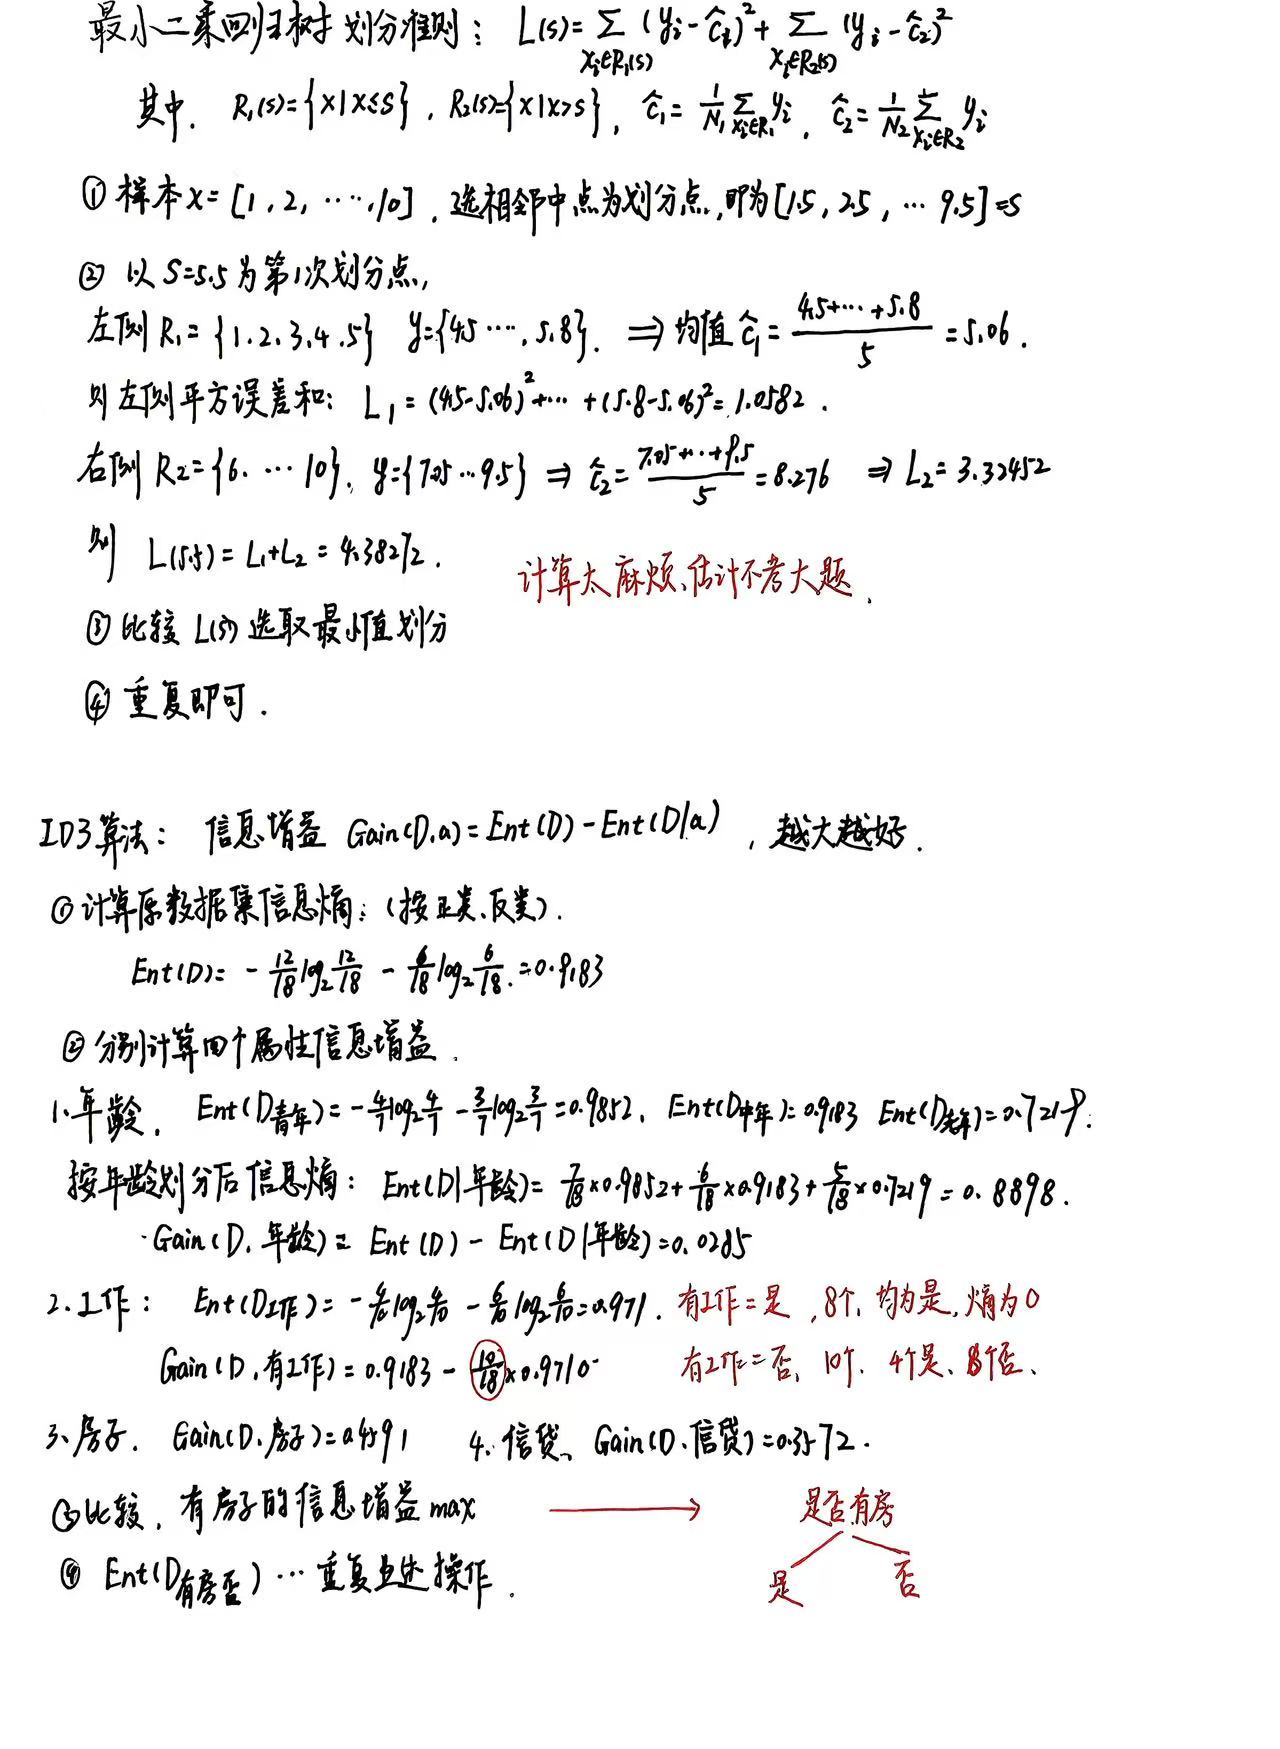 最小二乘回归树划分准则： L(s)=∑_{xi∈R₁(s)} (yi-ĉ₁)²+∑_{xi∈R₂(s)} (yi-ĉ₂)²
其中. R₁(s)={x|x≤s}, R₂(s)={x|x>s}, ĉ₁=1/N₁ ∑_{xi∈R₁} yi, ĉ₂=1/N₂ ∑_{xi∈R₂} yi
① 样本x=[1,2,…,10], 选相邻中点为划分点,即为[1.5, 2.5, … 9.5]=s
② 以S=5.5为第1次划分点,
左侧R₁={1.2.3.4.5} y={4.5 …, 5.8}. ⇒均值ĉ₁=(4.5+…+5.8)/5=5.06.
则左侧平方误差和: L₁=(4.5-5.06)²+…+(5.8-5.06)²=1.0582.
右侧R₂={6. … 10}, y={7.05 … 9.5} ⇒ ĉ₂=(7.05+…+9.5)/5=8.276 ⇒ L₂=3.32452
则 L(5.5)=L₁+L₂=4.38272.
计算太麻烦、估计不考大题.
③ 比较 L(s) 选取最小值划分
④ 重复即可.
ID3算法: 信息增益 Gain(D,a)=Ent(D)-Ent(D|a), 越大越好.
①计算原数据集信息熵: (按正类、反类).
Ent(D)= -12/18 log₂ 12/18 - 6/18 log₂ 6/18. =0.9183
② 分别计算四个属性信息增益.
1、年龄. Ent(D青年)=-4/7 log₂ 4/7 -3/7 log₂ 3/7=0.9852, Ent(D中年)=0.9183 Ent(D老年)=0.7219.
按年龄划分后信息熵: Ent(D|年龄)=7/18×0.9852+6/18×0.9183+5/18×0.7219=0.8898.
Gain(D,年龄)=Ent(D)-Ent(D|年龄)=0.0285
2.工作: Ent(D工作)=-4/10 log₂ 4/10 -6/10 log₂ 6/10=0.971. 有工作=是, 8个, 均为是, 熵为0
Gain(D,有工作)=0.9183-10/18×0.9710 有工作=否、10个、4个是、个否、
3、房子. Gain(D,房子)=0.4591 4. 信贷、Gain(D、信贷)=0.3572.
③比较, 有房子的信息增益max → 是否有房
④ Ent(D有房否)…重复上述操作.
是 否